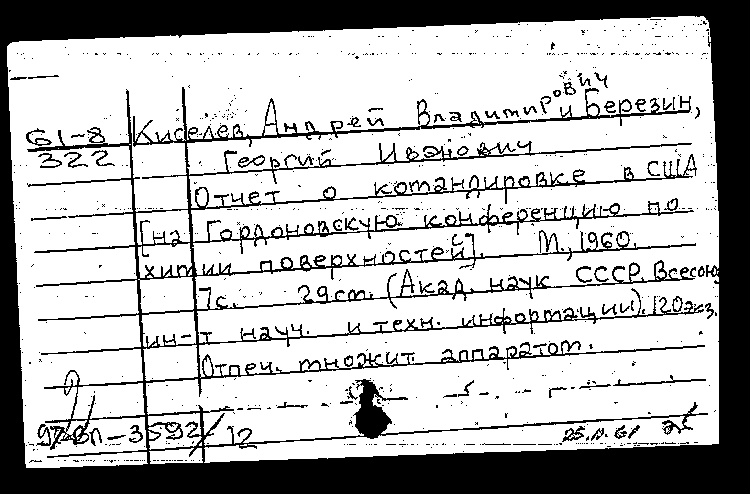 61-8 Киселев, Андрей Владимирович и Березин,
322 Георгий Иванович
Отчет о командировке в США
[на Гордоновскую конференцию по
химии поверхностей]. М., 1960.
7с. 29см. (Акад. наук СССР. Всесоюз
ин-т науч. и техн. информации). 120экз.
Отпеч. множит. аппаратом.
3592/12 25.IV.61